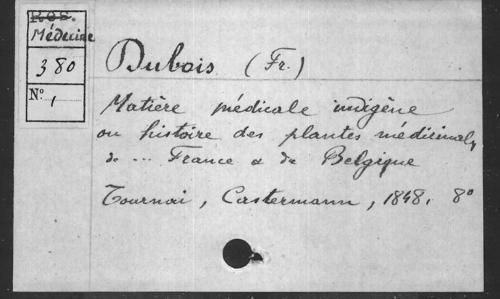 Res.
Médecine
380
N° 1
Dubois (Fr.)
Matière médicale indigène
ou histoire des plantes médicinales
de ... France & de Belgique
Tournai, Castermann, 1848, 8°